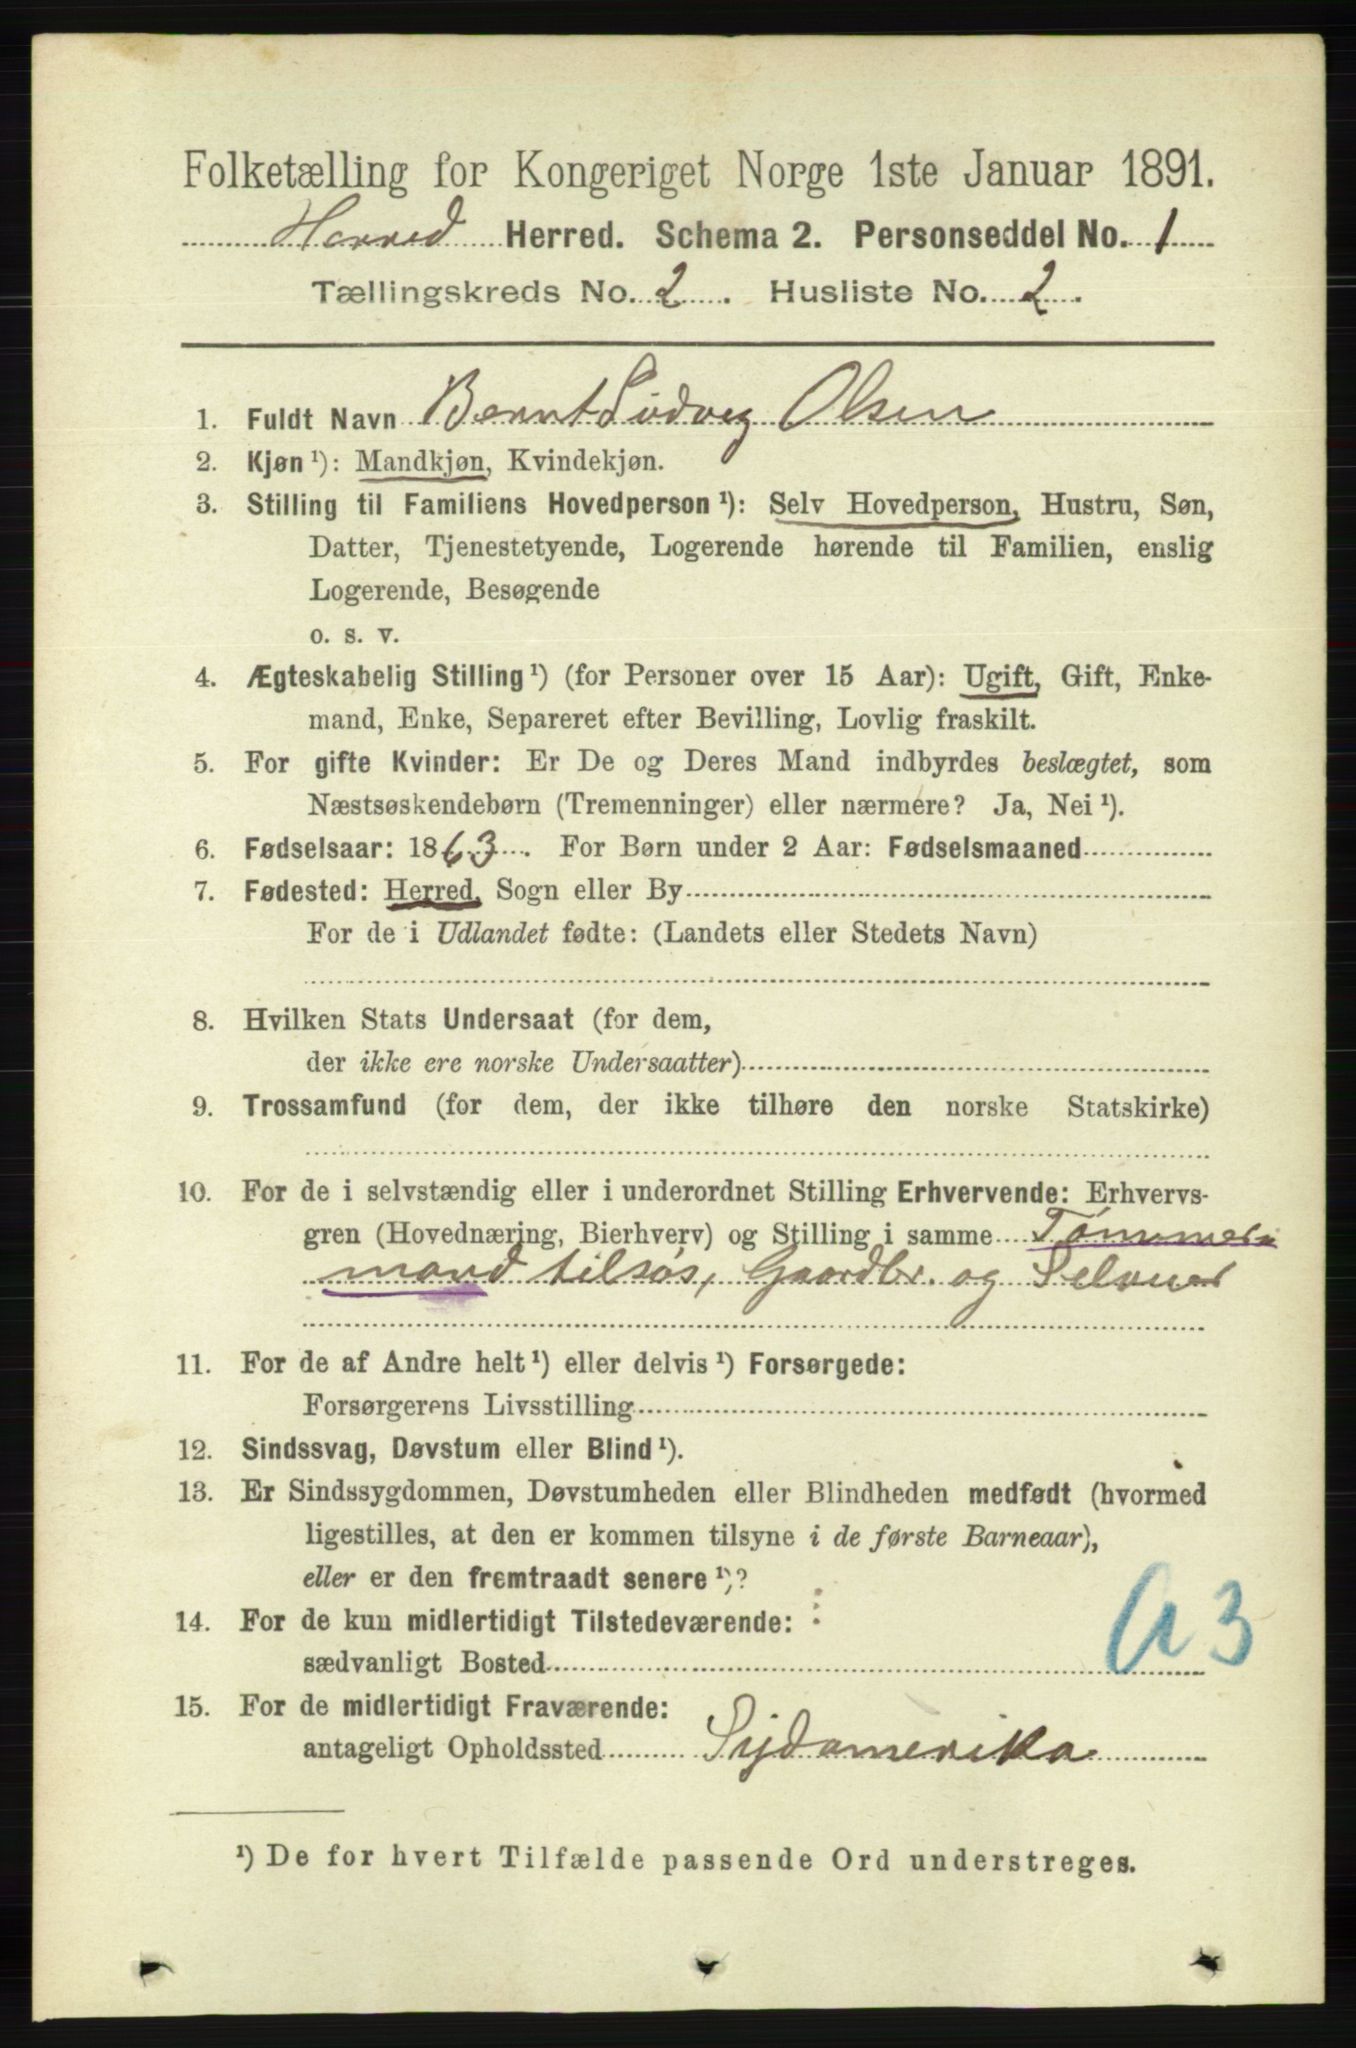 Folketælling for Kongeriget Norge 1ste Januar 1891.
Herred Herred. Schema 2. Personseddel No. 1
Tællingskreds No. 2. Husliste No. 2.
1. Fuldt Navn Bernt Ludvig Olsen
2. Kjøn ¹): Mandkjøn, Kvindekjøn.
3. Stilling til Familiens Hovedperson ¹): Selv Hovedperson, Hustru, Søn,
Datter, Tjenestetyende, Logerende hørende til Familien, enslig
Logerende, Besøgende
o. s. v.
4. Ægteskabelig Stilling ¹) (for Personer over 15 Aar): Ugift, Gift, Enke-
mand, Enke, Separeret efter Bevilling, Lovlig fraskilt.
5. For gifte Kvinder: Er De og Deres Mand indbyrdes beslægtet, som
Næstsøskendebørn (Tremenninger) eller nærmere? Ja, Nei ¹).
6. Fødselsaar: 1863. For Børn under 2 Aar: Fødselsmaaned
7. Fødested: Herred, Sogn eller By
For de i Udlandet fødte: (Landets eller Stedets Navn)
8. Hvilken Stats Undersaat (for dem,
der ikke ere norske Undersaatter)
9. Trossamfund (for dem, der ikke tilhøre den norske Statskirke)
10. For de i selvstændig eller i underordnet Stilling Erhvervende: Erhvervs-
gren (Hovednæring, Bierhverv) og Stilling i samme Tømmer-
mand tilsøs, Gaardbr. og Selveier
11. For de af Andre helt ¹) eller delvis ¹) Forsørgede:
Forsørgerens Livsstilling
12. Sindssvag, Døvstum eller Blind ¹).
13. Er Sindssygdommen, Døvstumheden eller Blindheden medfødt (hvormed
ligestilles, at den er kommen tilsyne i de første Barneaar),
eller er den fremtraadt senere ¹)?
14. For de kun midlertidigt Tilstedeværende:
sædvanligt Bosted
a 3
15. For de midlertidigt Fraværende:
antageligt Opholdssted Sydamerika
¹) De for hvert Tilfælde passende Ord understreges.